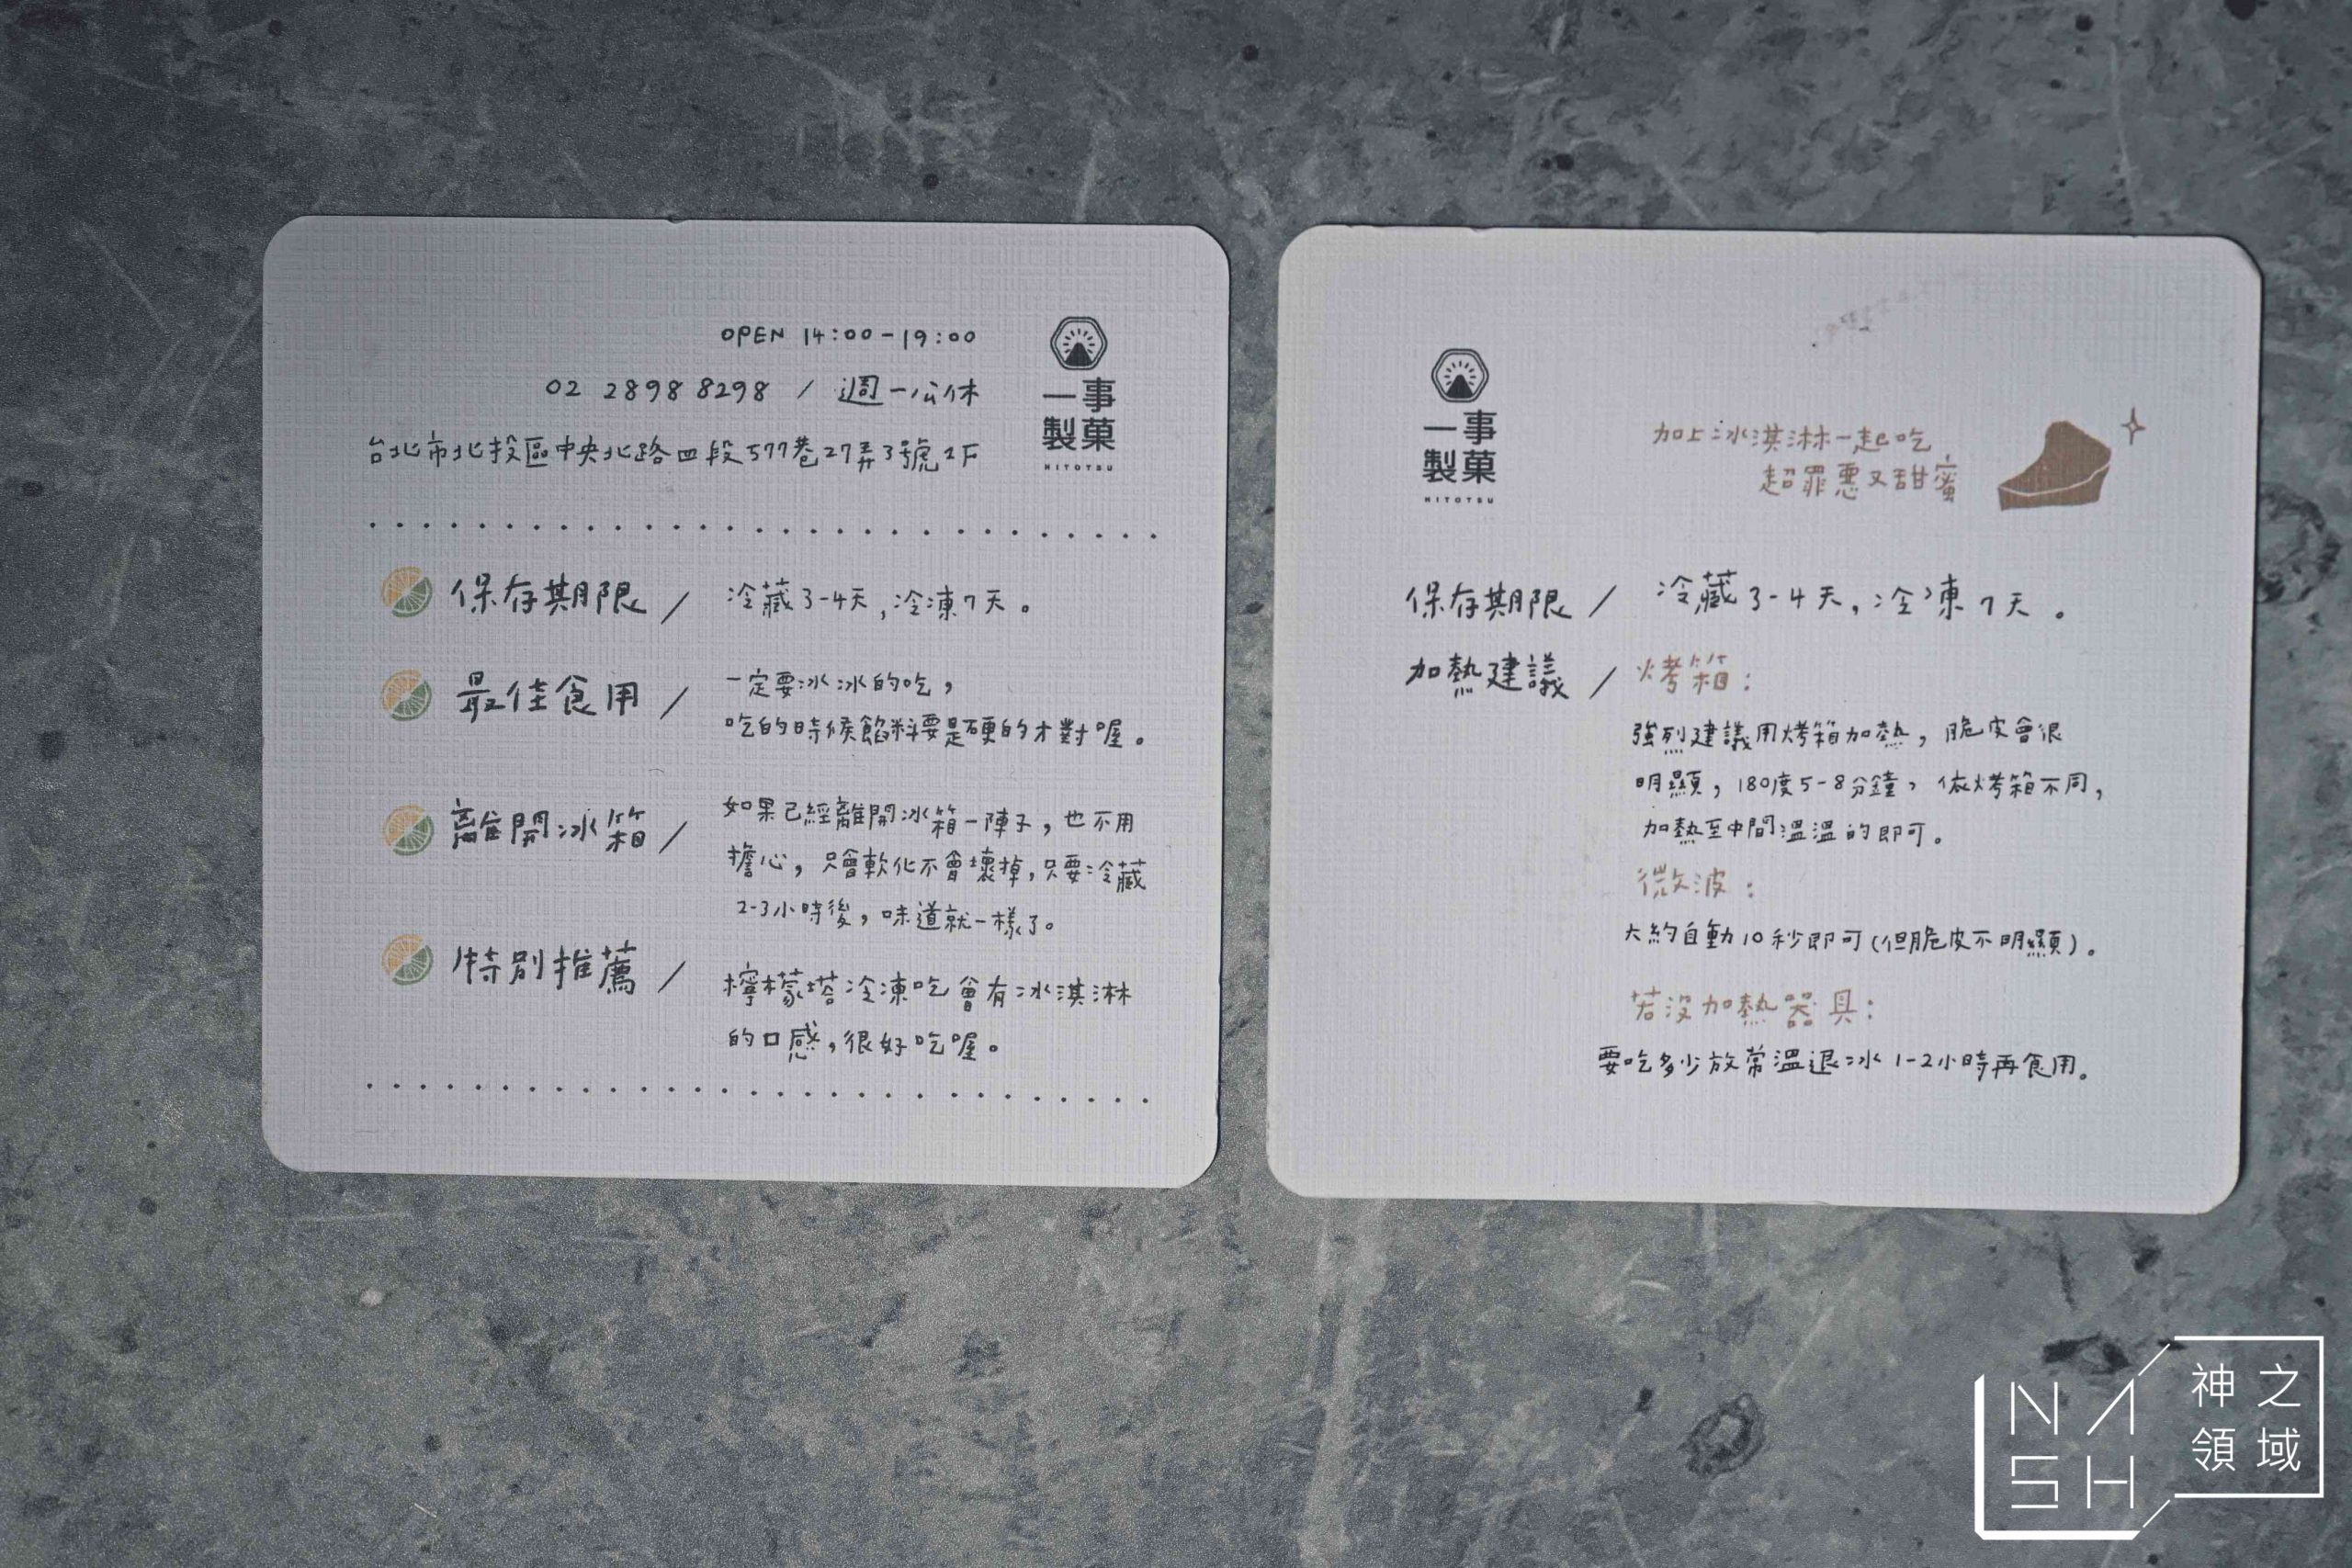 OPEN 14:00-19:00
02 2898 8298 / 週一公休
台北市北投區中央北路四段577巷27弄3號1F
一事
製菓
HITOTSU
保存期限 / 冷藏3-4天,冷凍7天。
最佳食用 / 一定要冰冰的吃,
吃的時候餡料要是硬的才對喔。
離開冰箱 / 如果已經離開冰箱一陣子,也不用
擔心,只會軟化不會壞掉,只要冷藏
2-3小時後,味道就一樣了。
特別推薦 / 檸檬塔冷凍吃會有冰淇淋
的口感,很好吃喔。
一事
製菓
HITOTSU
加上冰淇淋一起吃
超罪惡又甜蜜
保存期限 / 冷藏3-4天,冷凍7天。
加熱建議 / 烤箱:
強烈建議用烤箱加熱,脆皮會很
明顯,180度5-8分鐘,依烤箱不同,
加熱至中間溫溫的即可。
微波:
大約自動10秒即可(但脆皮不明顯)。
若沒加熱器具:
要吃多少放常溫退冰1-2小時再食用。
NASH
神之
領域